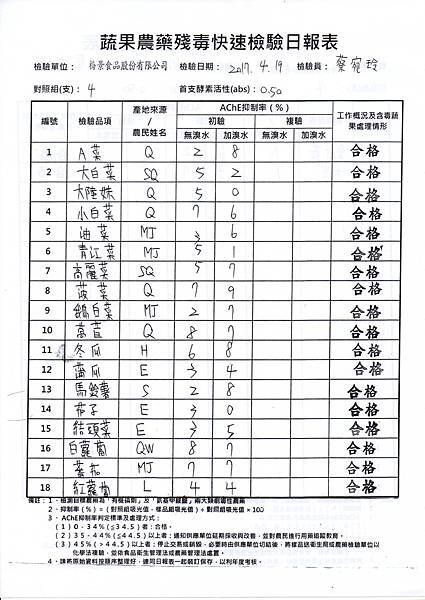 蔬果農藥殘毒快速檢驗日報表
檢驗單位： 裕景食品股份有限公司 檢驗日期： 2017.4.19 檢驗員： 蔡宛玲
對照組(支)： 4 首支酵素活性(abs)： 0.50
編號 檢驗品項 產地來源/農民姓名 AChE抑制率(%) 工作概況及含毒蔬果處理情形
初驗 複驗
無溴水 加溴水 無溴水 加溴水
1 A菜 Q 2 8 合格
2 大白菜 SQ 5 2 合格
3 大陸妹 Q 5 0 合格
4 小白菜 Q 7 6 合格
5 油菜 MJ 3 6 合格
6 青江菜 MJ 5 1 合格
7 高麗菜 SQ 5 7 合格
8 菠菜 Q 7 9 合格
9 鵝白菜 MJ 2 7 合格
10 萵苣 Q 8 7 合格
11 冬瓜 H 6 8 合格
12 扁瓜 E 3 4 合格
13 馬鈴薯 S 2 8 合格
14 茄子 E 3 0 合格
15 結頭菜 E 3 5 合格
16 白蘿蔔 QW 8 7 合格
17 蕃茄 MJ 7 7 合格
18 紅蘿蔔 L 4 4 合格
備註：1、檢測目標農藥為「有機磷劑」及「氨基甲酸鹽」兩大類劇毒性農藥
2、抑制率(%)=(對照組吸光值-樣品組吸光值)÷對照組吸光值×100
3、AChE抑制率判定標準及處理方式：
(1)0-34%(≦34.5)者：合格。
(2)35-44%(≦44.5)以上者：通知供應單位延期採收與改善，並對農民進行用藥追蹤教育。
(3)45%(>44.5)以上者：停止交易或銷毀，必要時由供應單位切結後，將樣品送衛生局或農藥檢驗單位以
化學法複驗，並依食品衛生管理法或農藥管理法處置。
4、請將原始資料按順序整理好，連同日報表一起裝訂保存，以利年度考核。